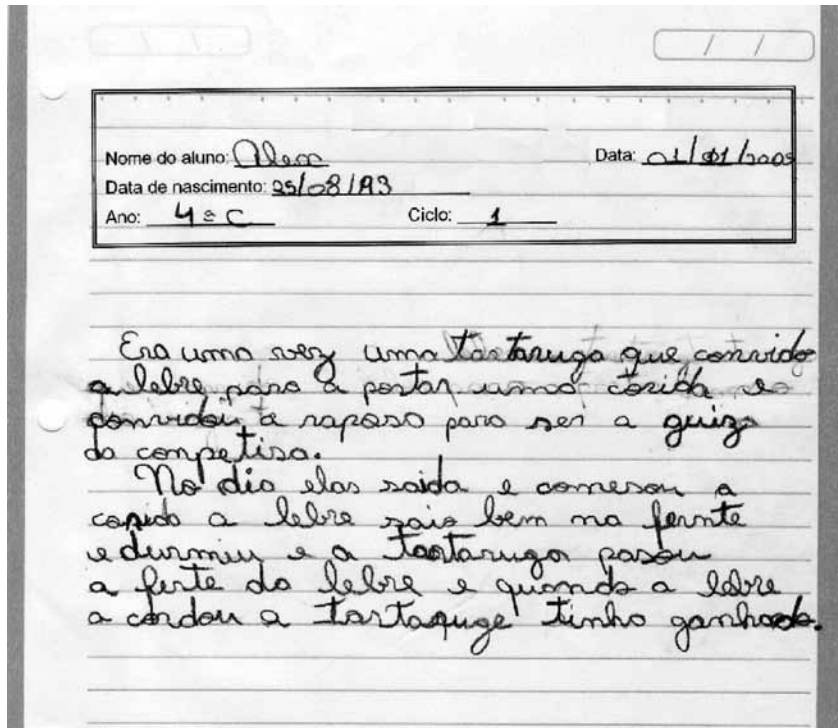 Nome do aluno: Alex Data: 01/01/2005
Data de nascimento: 25/08/93
Ano: 4ª C Ciclo: 1
Era uma vez uma tartaruga que convido
a lebre para a postar uma corida e
convidou a raposo para ser a guiza
da conpetisa.
No dia elas saida e comesou a
corida a lebre saio bem na fernte
e durmiu e a tartaruga pasou
a ferte da lebre e quando a lebre
a cordou a tartaruge tinha ganhado.